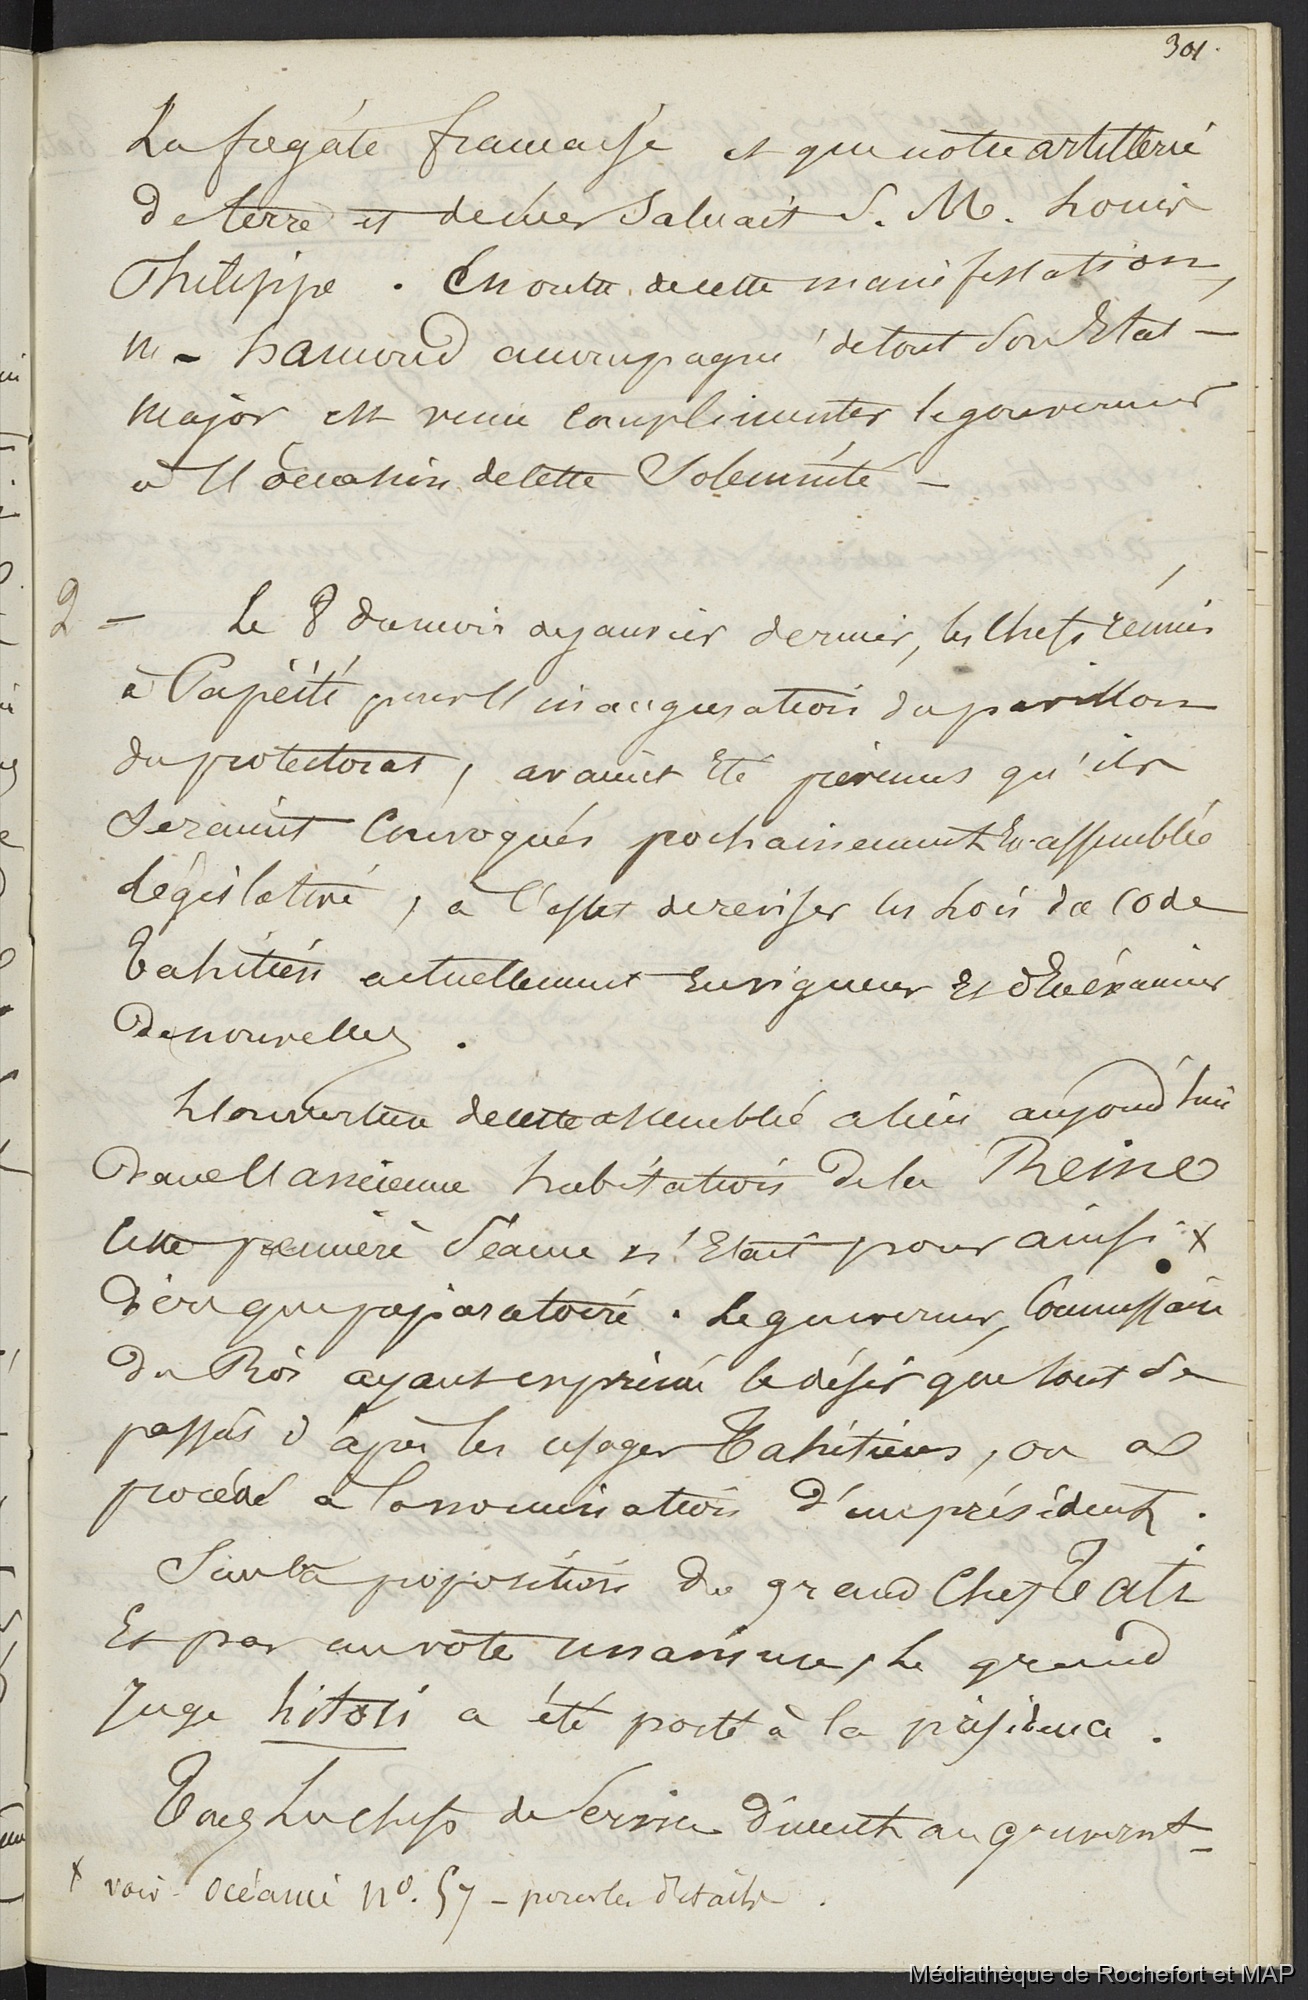 301.
La frégate française et que notre artillerie
de terre et de mer saluait S. M. Louis
Philippe. En outre de cette manifestation,
M- hamond accompagné de tout son Etat-
Major est venu complimenter le gouverneur
à l'occasion de cette solennité -
2 = Le 8 du mois de janvier dernier, les chefs réunis
à Papéïté pour l'inauguration du pavillon
du protectorat, avaient été prévenus qu'ils
seraient convoqués prochainement En assemblée
Législative, à l'effet de reviser les Lois du Code
Tahitien actuellement en vigueur Et d'En examiner
de nouvelles.
L'ouverture de cette assemblée a lieu aujourd'hui
dans l'ancienne habitation de la Reine
Cette première séance n'Etait pour ainsi x
dire que préparatoire. Le gouverneur, Commissaire
du Roi ayant exprimé le désir que tout se
passât d'après les usages Tahitiens, on a
procédé à la nomination d'un président.
Sur la proposition du grand Chef Tati
Et par un vote unanime, Le grand
Juge hitoti a été porté à la présidence.
Tous Les chefs de service dîment au gouvernt-
x voir Océanie No. 57 - pour les détails.
Médiathèque de Rochefort et MAP